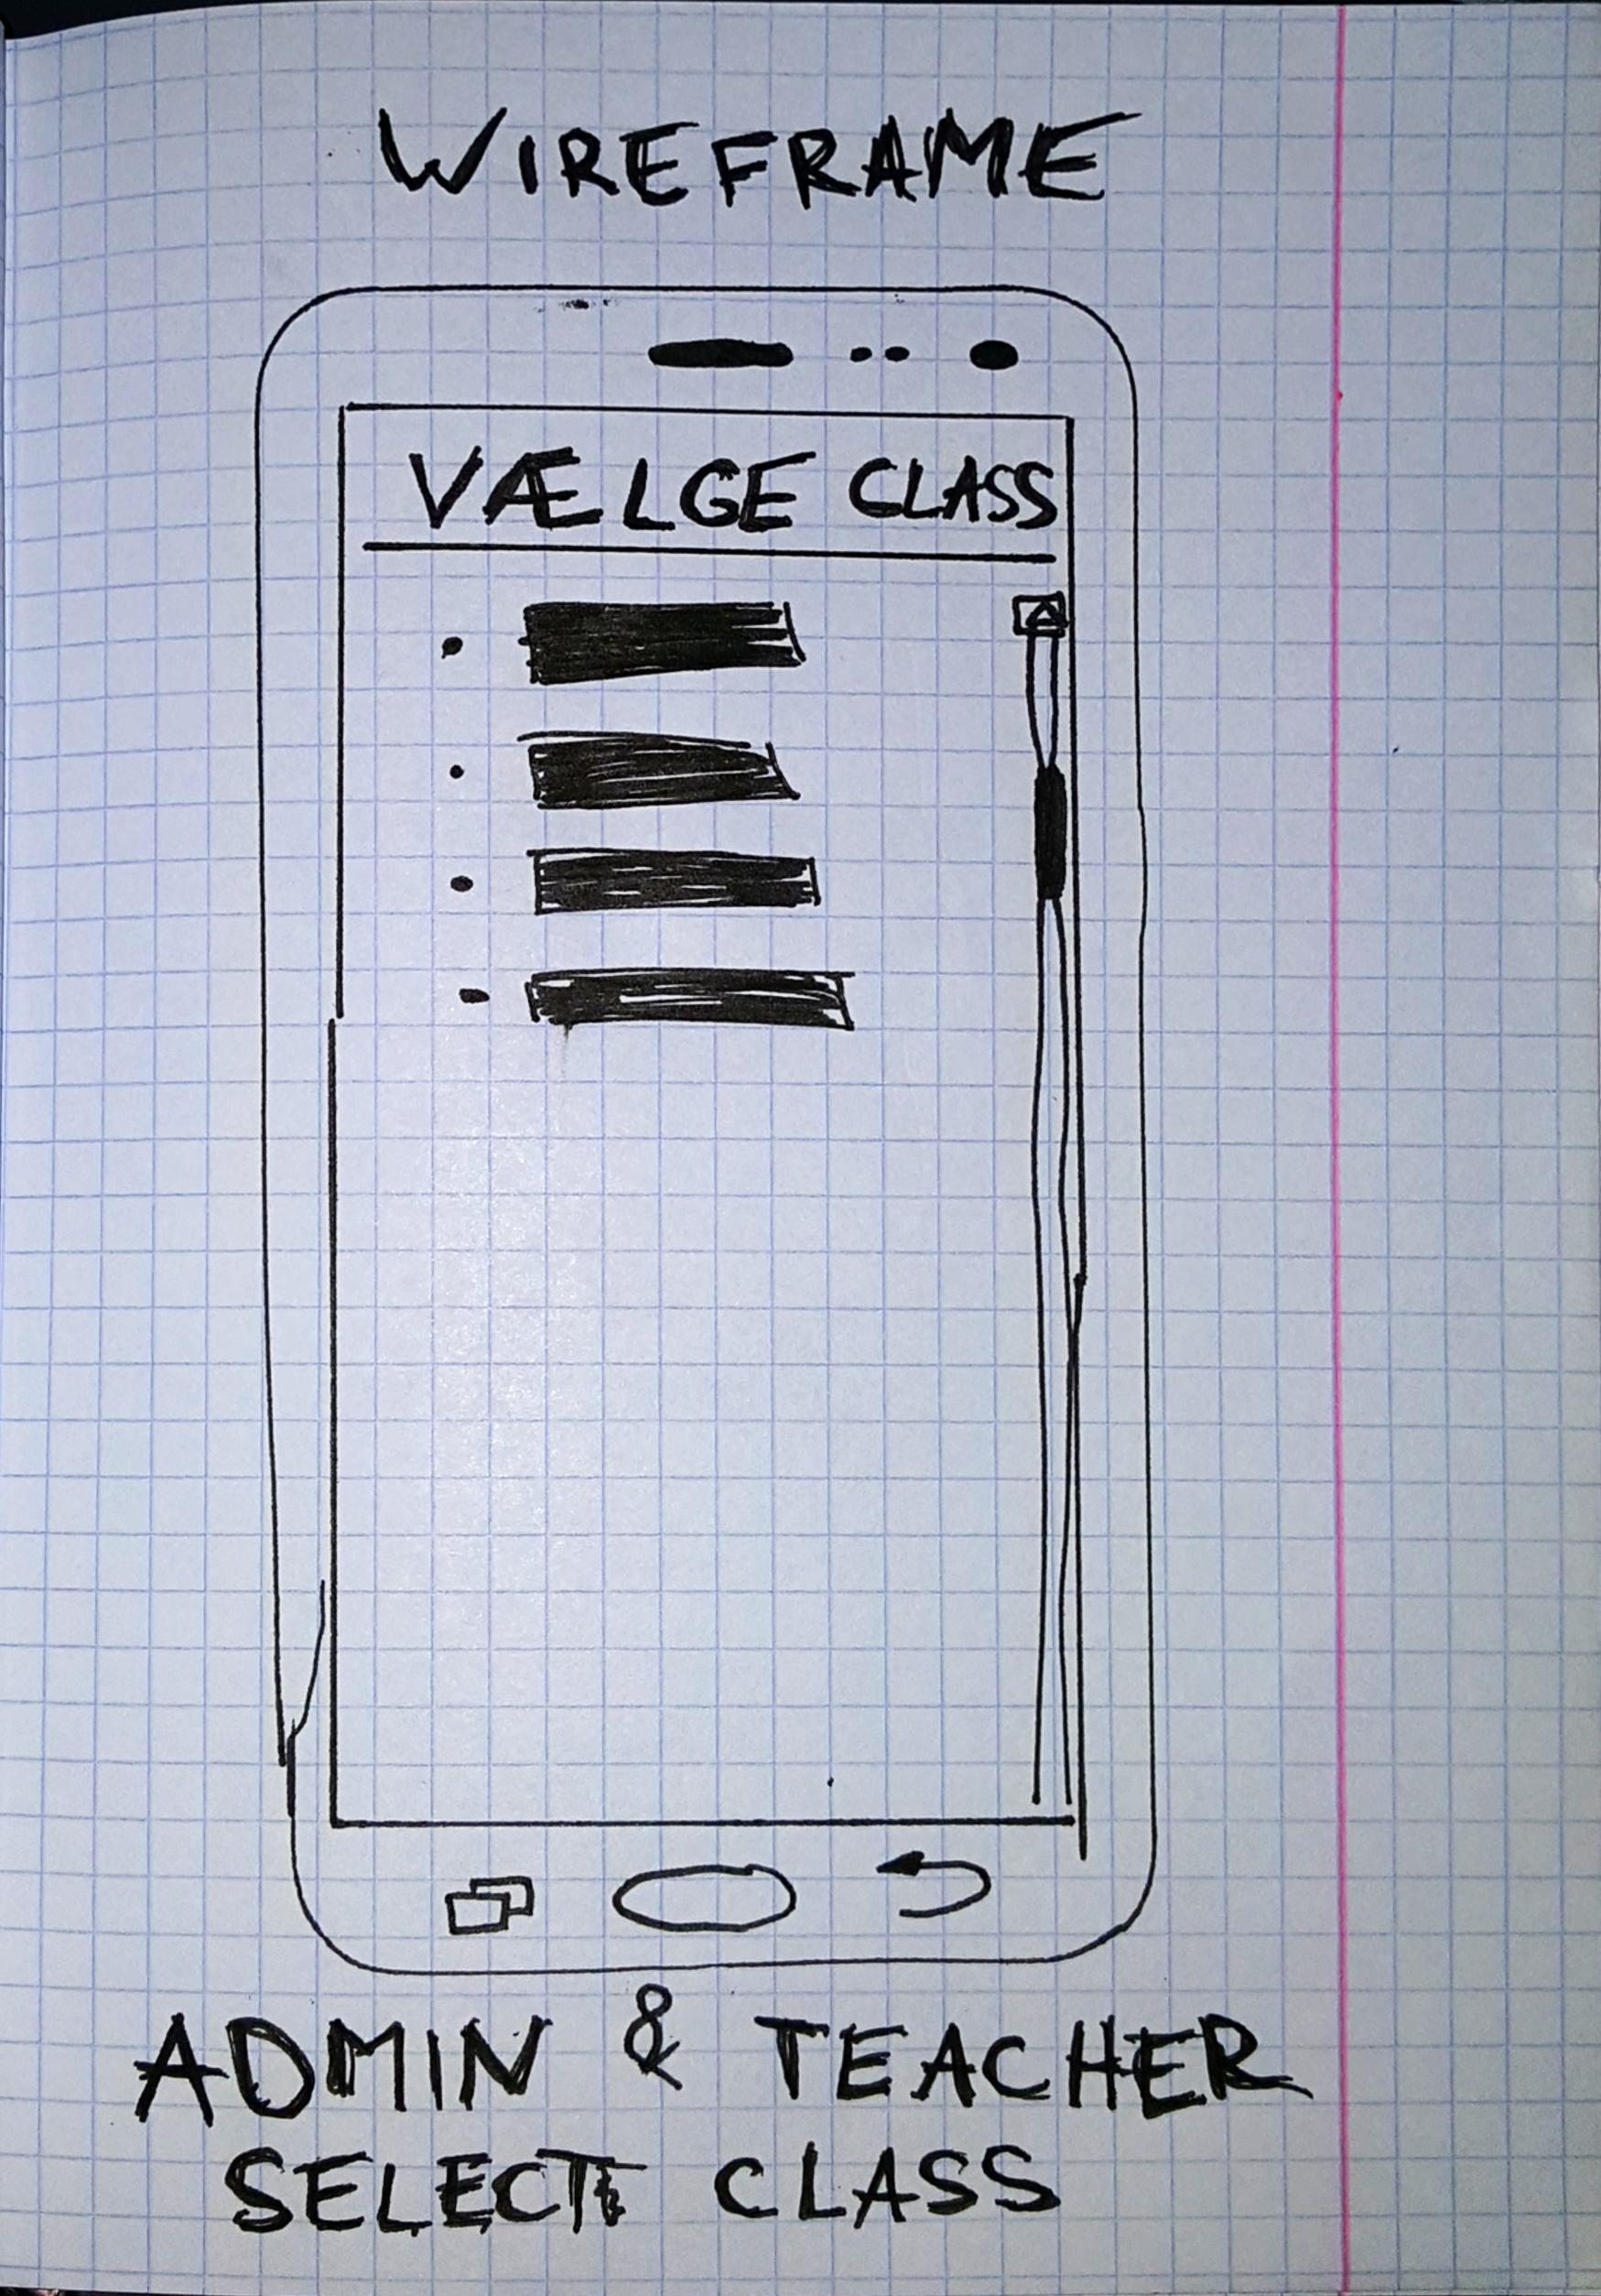 WIREFRAME
VÆLGE CLASS
ADMIN & TEACHER
SELECT CLASS